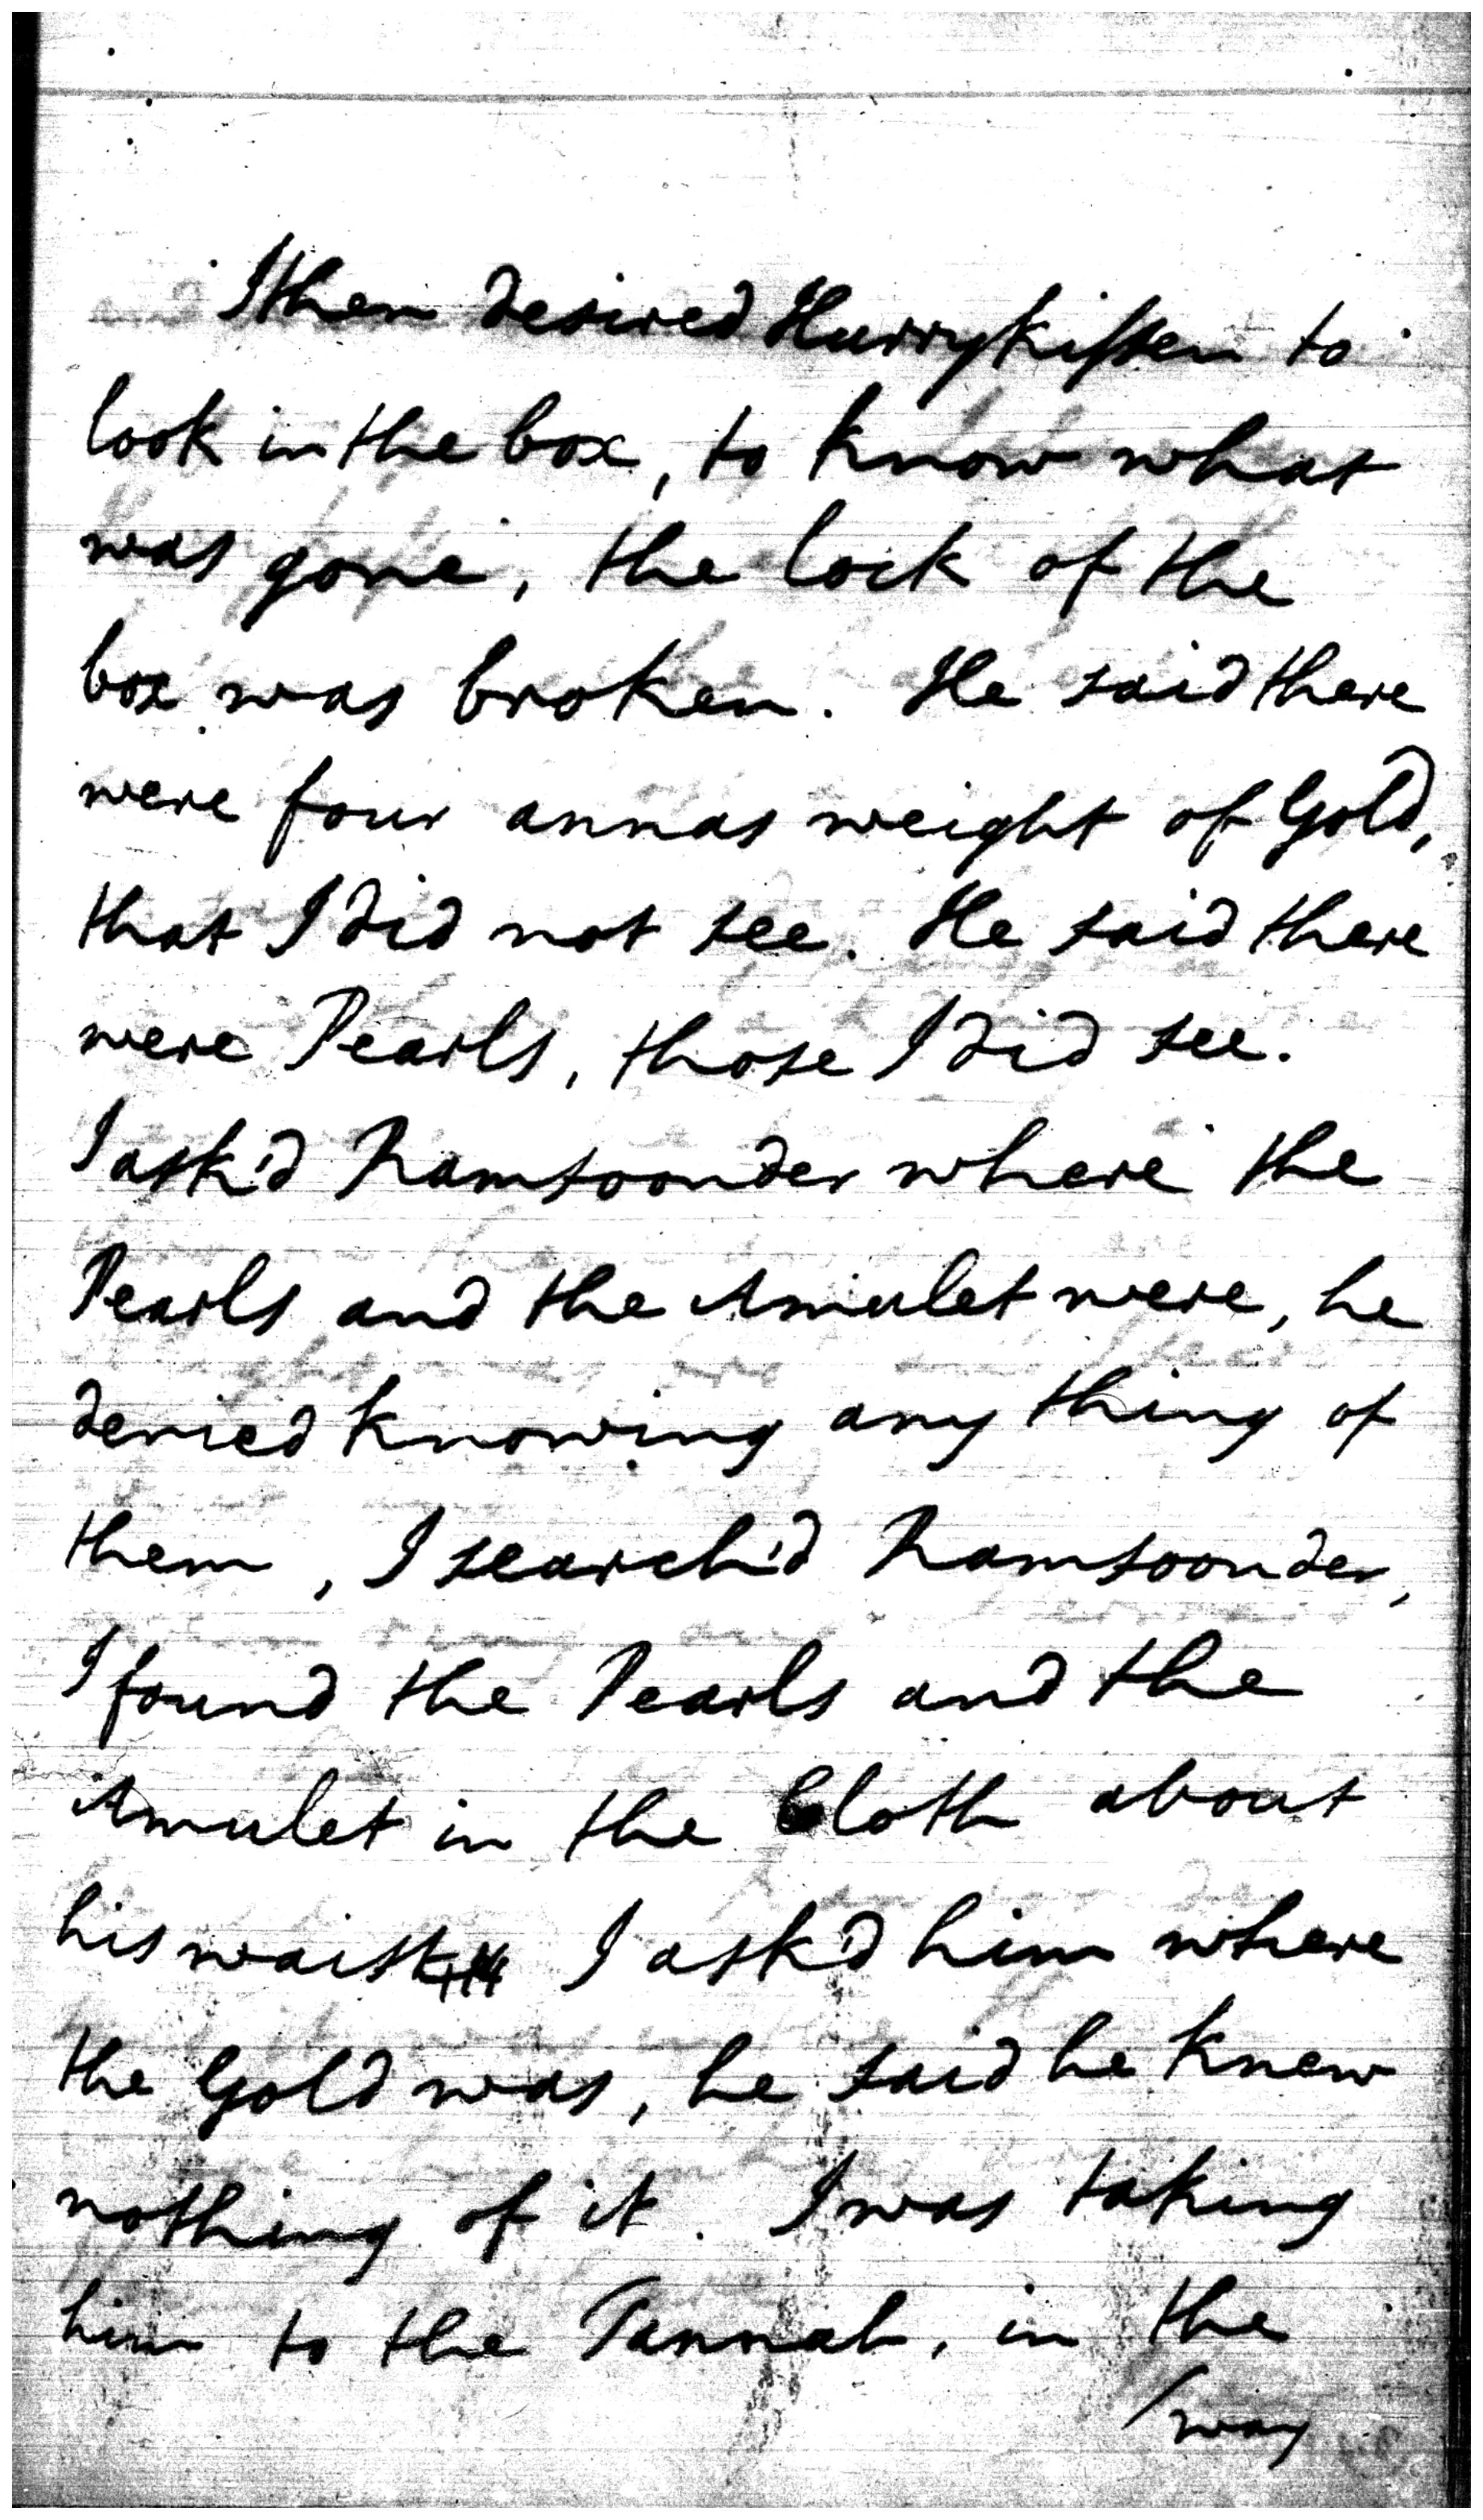 I then desired Hurrykissen to
look in the box, to know what
was gone, the lock of the
box was broken. He said there
were four annas weight of Gold,
that I did not see. He said there
were Pearls, those I did see.
I ask'd Ramsoonder where the
Pearls and the Amulet were, he
denied knowing any thing of
them, I search'd Ramsoonder,
I found the Pearls and the
Amulet in the Cloth about
his waist I ask'd him where
the Gold was, he said he knew
nothing of it. I was taking
him to the Tannah, in the
/way